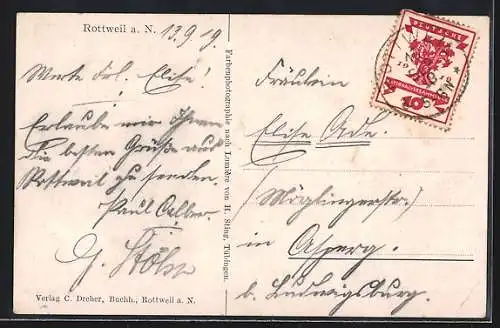 Rottweil a. N. 13.9.19.
Werte Frl. Elise!
Erlaube mir Ihnen
die besten Grüße aus
Rottweil zu senden.
Paul
G.
Verlag C. Dreher, Buchh., Rottweil a. N.
Farbenphotographie nach Lumière von H. Sting, Tübingen.
Fräulein
Elise Ade.
(Möglingerstr.)
in Asperg.
b. Ludwigsburg.
DEUTSCHE
1919
NATIONALVERSAMMLUNG
10